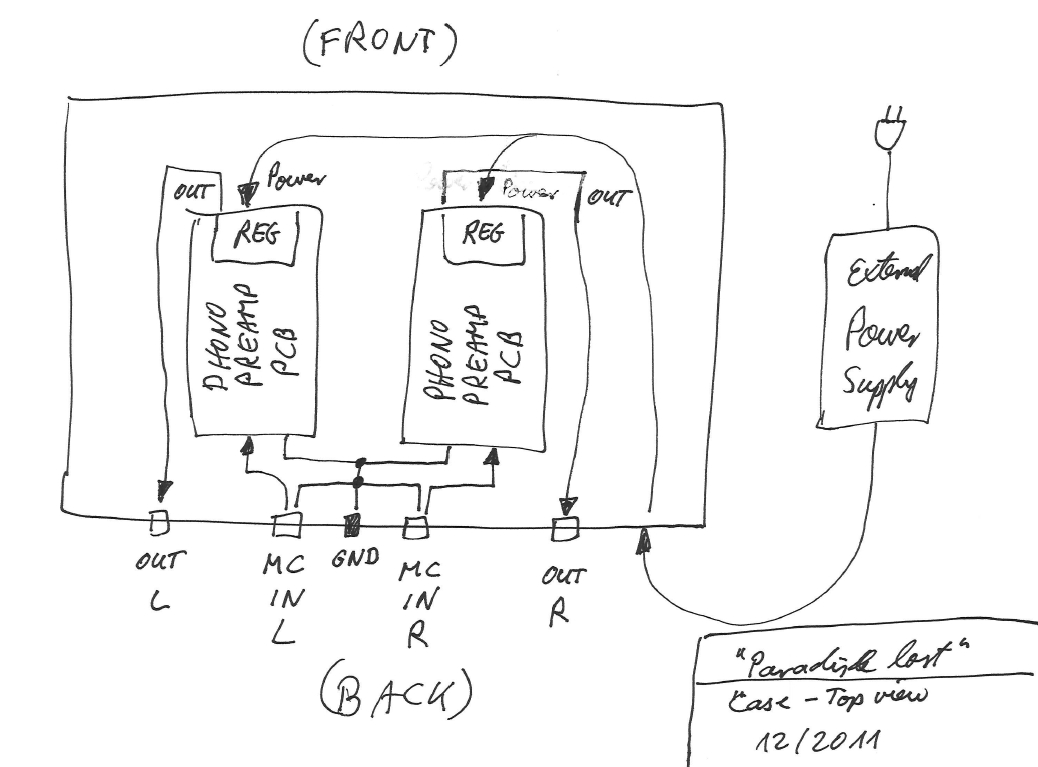 (FRONT)
OUT
Power
REG
PHONO
PREAMP
PCB
Power
OUT
REG
PHONO
PREAMP
PCB
External
Power
Supply
OUT
L
MC
IN
L
GND
MC
IN
R
OUT
R
(BACK)
"Paradise lost"
Case - Top view
12/2011